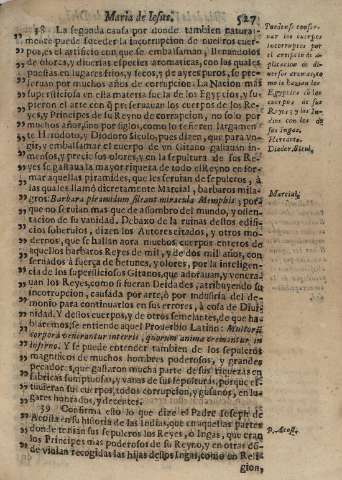 Maria de Iesus. 527
38 La segunda causa por donde tambien natural-
mente puede suceder la incorrupcion de nuestros cuer-
pos, es el artificio con que se embalsaman, llenandolos
de olores, y diversas especies aromaticas, con los quales
puestas en lugares frios, y secos, y de ayres puros, se pre-
servan por muchos años de corrupcion. La Nacion mas
supersticiosa en esta materia fue la de los Egypcios, y su-
pieron el arte con q̃ preservauan los cuerpos de los Re-
yes, y Principes de su Reyno de corrupcion, no solo por
muchos años, sino por siglos, como lo refieren largamen-
te Herodoto, y Diodoro Siculo, pues dizen, que para vn-
gir, y embalsamar el cuerpo de vn Gitano gastauan in-
mensos, y precisos olores, y en la sepultura de sus Re-
yes se gastaua la mayor riqueza de todo el Reyno en for-
mar aquellas piramides, que les seruian de sepulcros, à
las quales llamò dicretamente Marcial, barbaros mila-
gros: Barbara piramidum sileant miracula Memphis; por-
que no seruian mas que de assombro del mundo, y osten-
tacion de su vanidad. Debaxo de la ruinas destos edifi-
cios soberuios, dizen los Autores citados, y otros mo-
dernos, que se hallan aora muchos cuerpos enteros de
aquellos barbaros Reyes de mil, y de dos mil años, con-
sernados à fuerça de betunes, y olores, por la inteligen-
cia de los supersticiosos Gitanos, que adorauan, y venera-
uan los Reyes, como si fueran Deidades, atribuyendo su
incorrupcion, causada por arte, ò por industria del de-
monio para continuarlos en sus errores, à cosa de Diui-
nidad. Y destos cuerpos, y de otros semejantes, de que ha-
blaremos, se entiende aquel Prouerbio Latino: Multorũ
corpora venerantur interris, quorum anima cremantur in
inferno. Y se puede entender tambien de los sepulcros
magnificos de muchos hombres poderosos, y grandes
pecadores, que gastaron mucha parte de sus riquezas en
fabricas sumptuosas, y vanas de sus sepulturas, porque es-
tuuieran sus cuerpos, todos corrupcion, y gusanos, en lu-
gares honrados, y decentes.
39 Confirma esto lo que dize el Padre Ioseph de
Acosta en su historia de las Indias, que en aquellas partes
donde tenian sus sepulcros los Reyes, ò Ingas, que eran
los Principes mas poderosos de su Reyno, y en otra
de violan recogidas las hijas destos Ingas, como en Reli-
gion,
Puedense conser-
uar los cuerpos
incorruptos por
el artificio de
aplicacion de di-
uersos aromas, co-
mo lo hazian los
Egypcios de los
cuerpos de sus
Reyes; y los In-
dios con los de
sus Ingas.
Herodoto.
Diodor. Sicul.
Marcial.
P. Acosta.